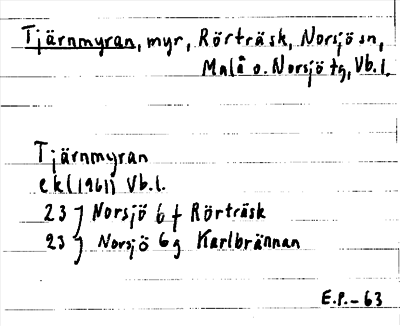 Tjärnmyran, myr, Rörträsk, Norsjö sn,
Malå o. Norsjö tg, Vb.l.
Tjärnmyran
ek (1961) Vb.l.
23 J Norsjö 6 f Rörträsk
23 J Norsjö 6 g Karlbrännan
E.P.-63